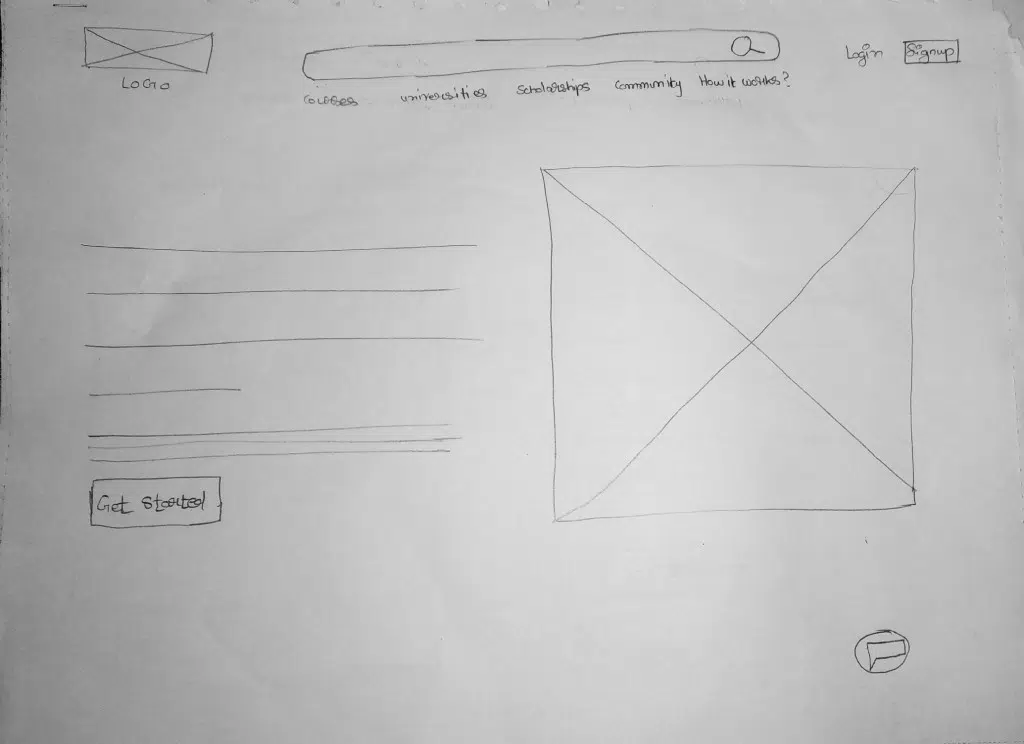 LOGO
Login Signup
Courses universities Scholarships Community How it works?
Get Started